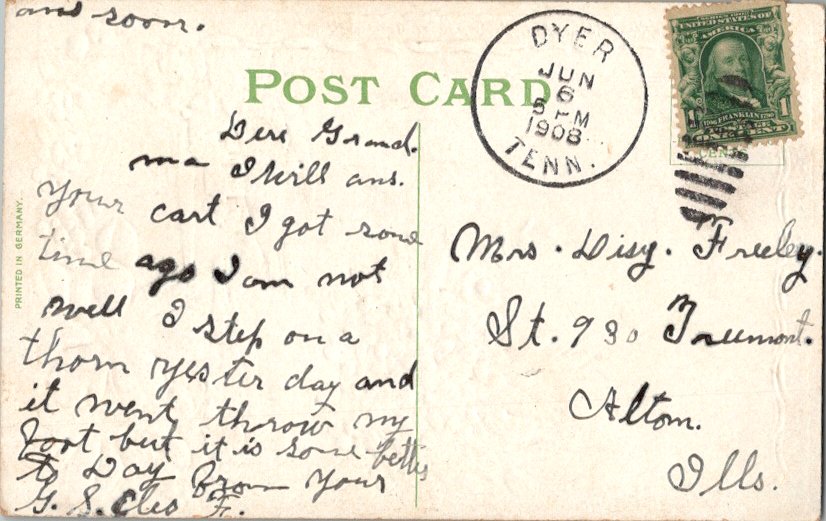 ans soon.
POST CARD
DYER
JUN
6
5 PM
1908
TENN.
UNITED STATES OF
AMERICA
FRANKLIN
1
Dere Grand.
ma I will ans.
your cart I got some
time ago I am not
well I step on a
thorn yester day and
it went throw my
foot but it is some better
to Day from your
G. S. Cleo F.
Mrs. Disy. Freeley.
St. 930 Treemont.
Alton.
Ills.
PRINTED IN GERMANY.